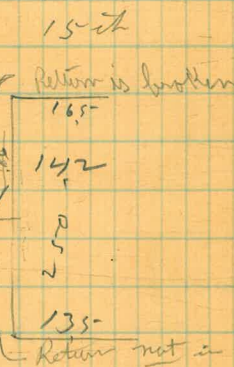 15th
Return is broken
165
142
250
135
Return not in